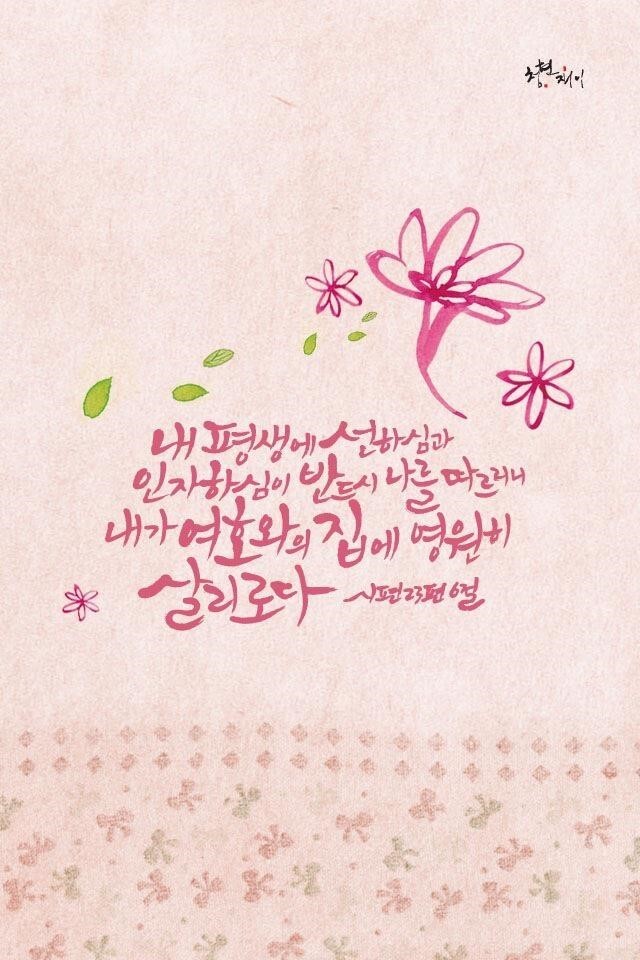 내 평생에 선하심과
인자하심이 반드시 나를 따르리니
내가 여호와의 집에 영원히
살리로다 시편23편6절